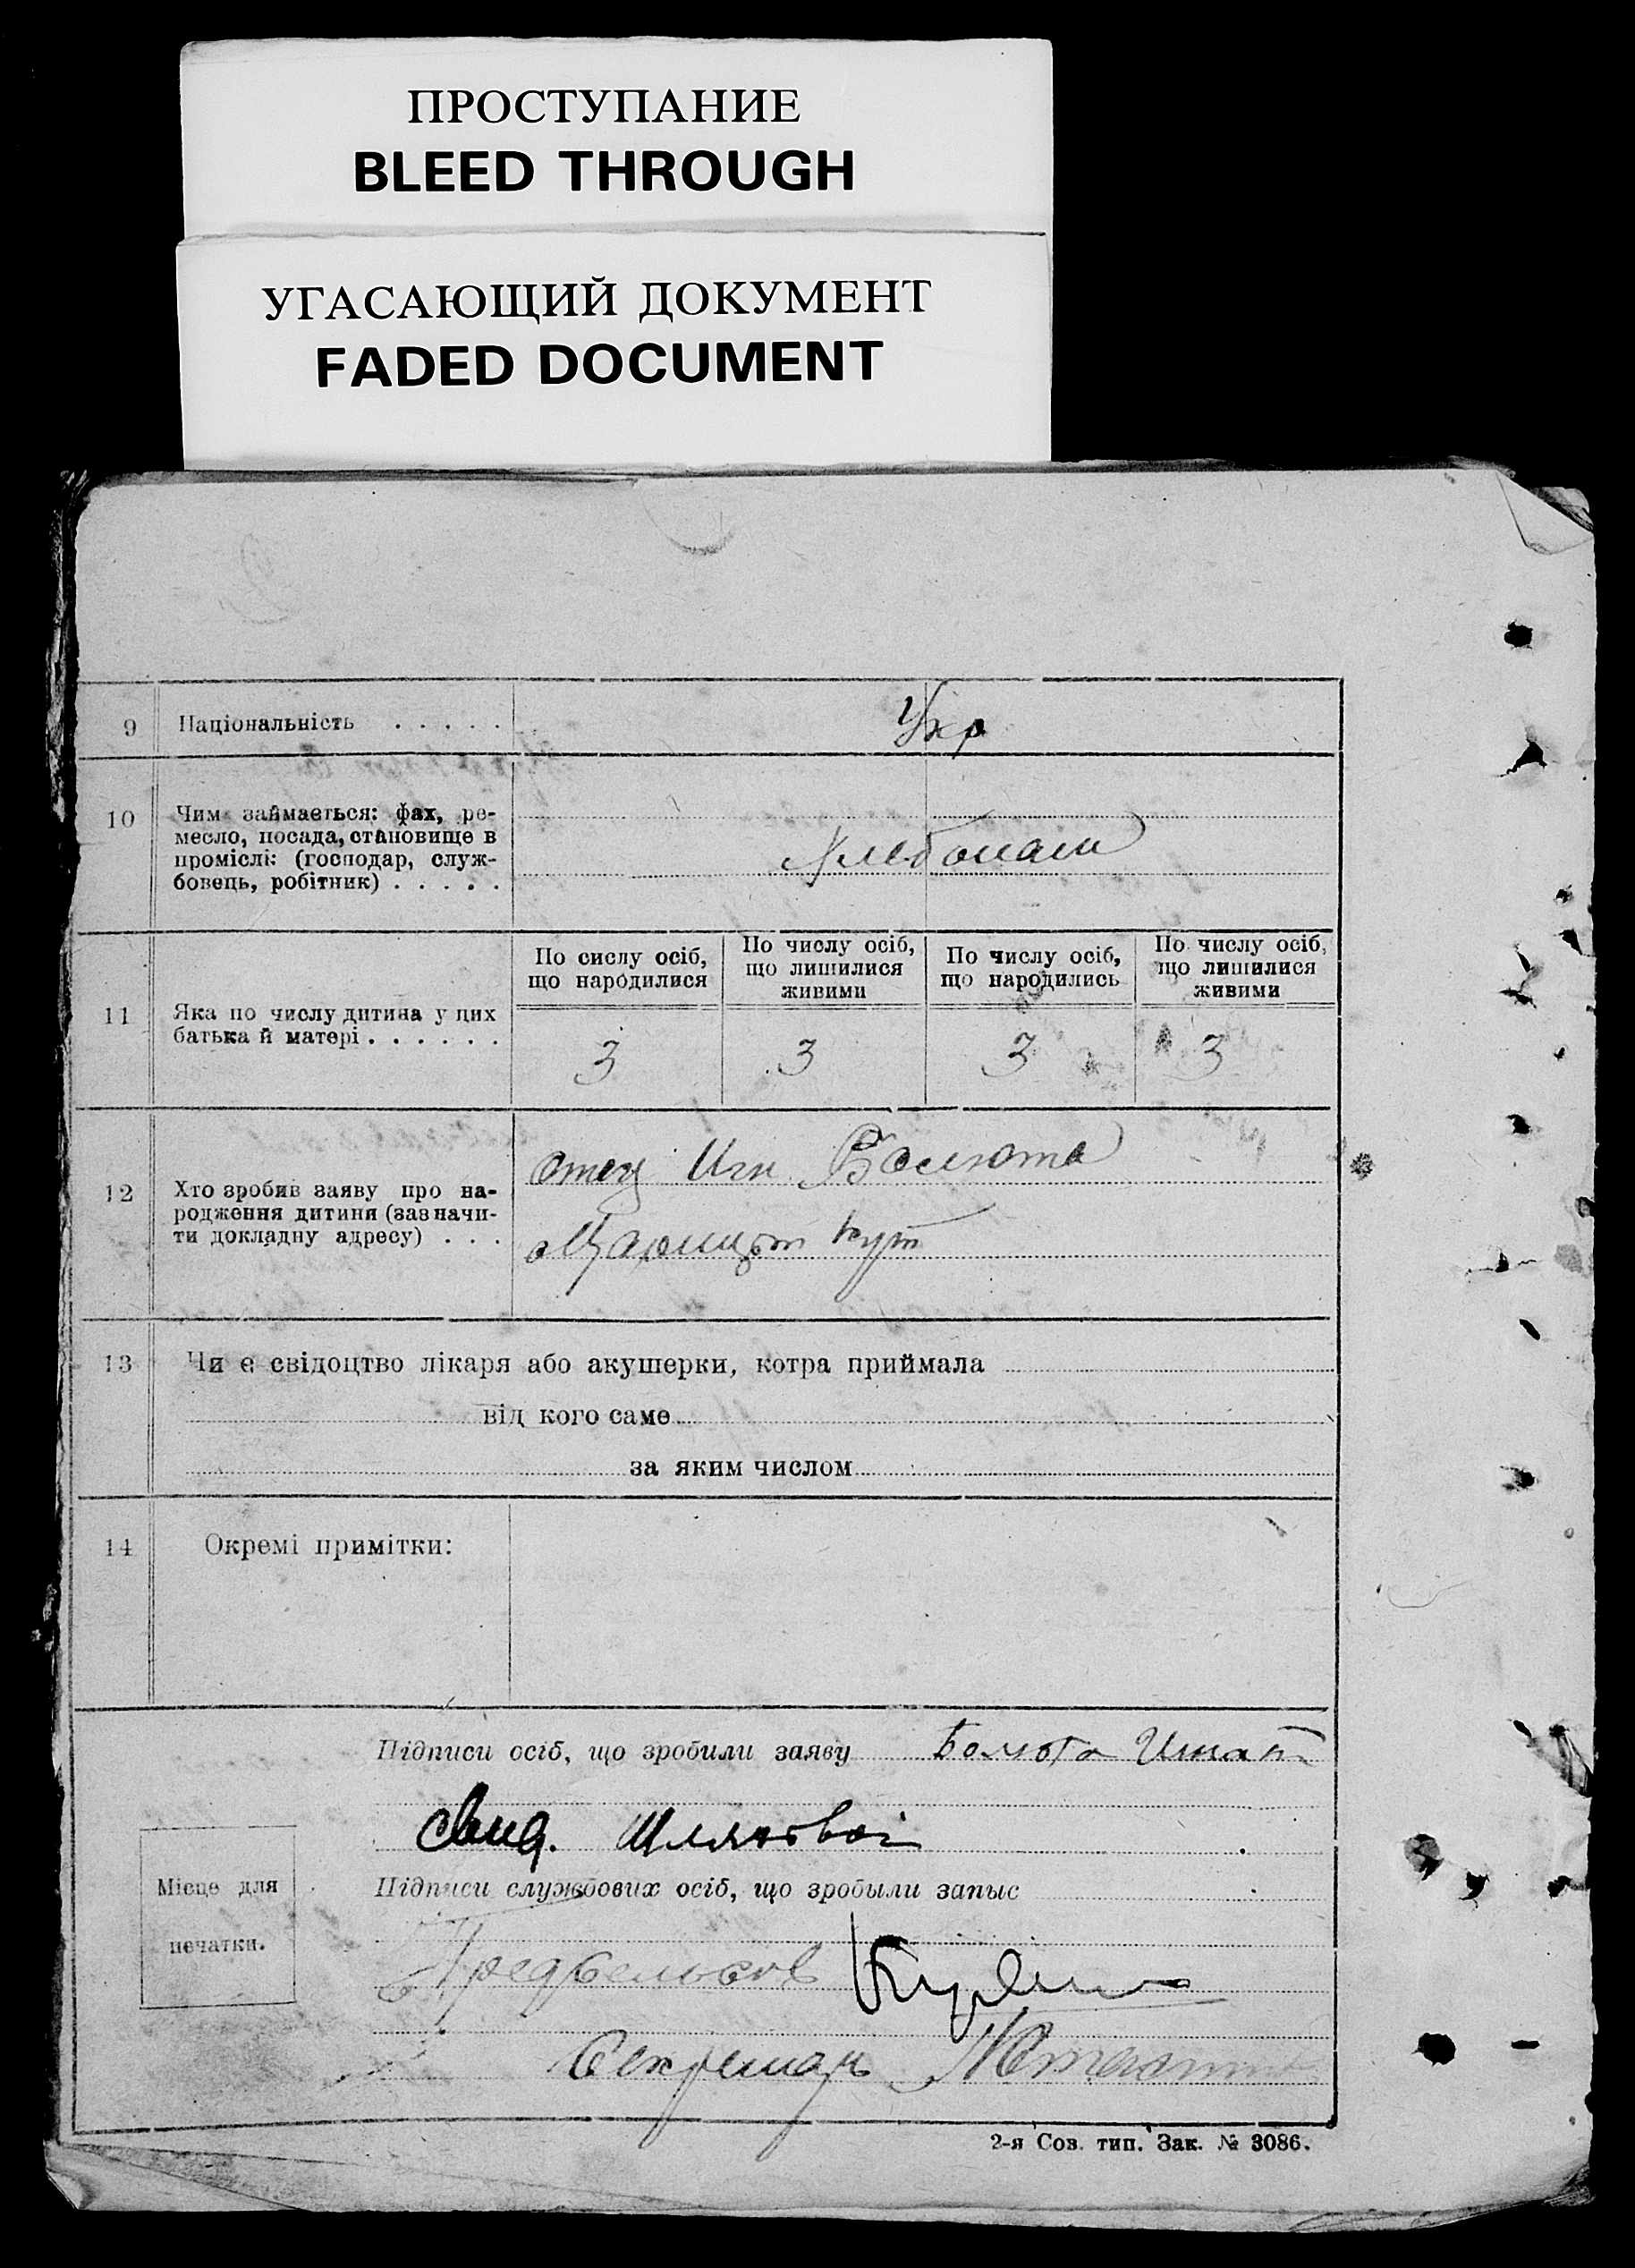 ПРОСТУПАНИЕ
BLEED THROUGH
УГАСАЮЩИЙ ДОКУМЕНТ
FADED DOCUMENT
9 Національність . . . . . Укр
10 Чим займається: фах, ре-
месло, посада, становище в
промислі: (господар, служ-
бовець, робітник) . . . . .
Хлебопаш
11 Яка по числу дитина у цих
батька й матері . . . . . .
По сислу осіб,
що народилися
По числу осіб,
що лишилися
живими
По числу осіб,
що народились
По числу осіб,
що лишилися
живими
3 3 3 3
12 Хто зробив заяву про на-
родження дитини (зазначи-
ти докладну адресу) . . .
отец Игн Болюта
кут
13 Чи є свідоцтво лікаря або акушерки, котра приймала
від кого саме
за яким числом
14 Окремі примітки:
Підписи осіб, що зробили заяву Болюта Игнат
Свид.
Підписи службових осіб, що зробыли запыс
Місце для
печатки.
Предсельсов
Секретарь
2-я Сов. тип. Зак. № 3086.